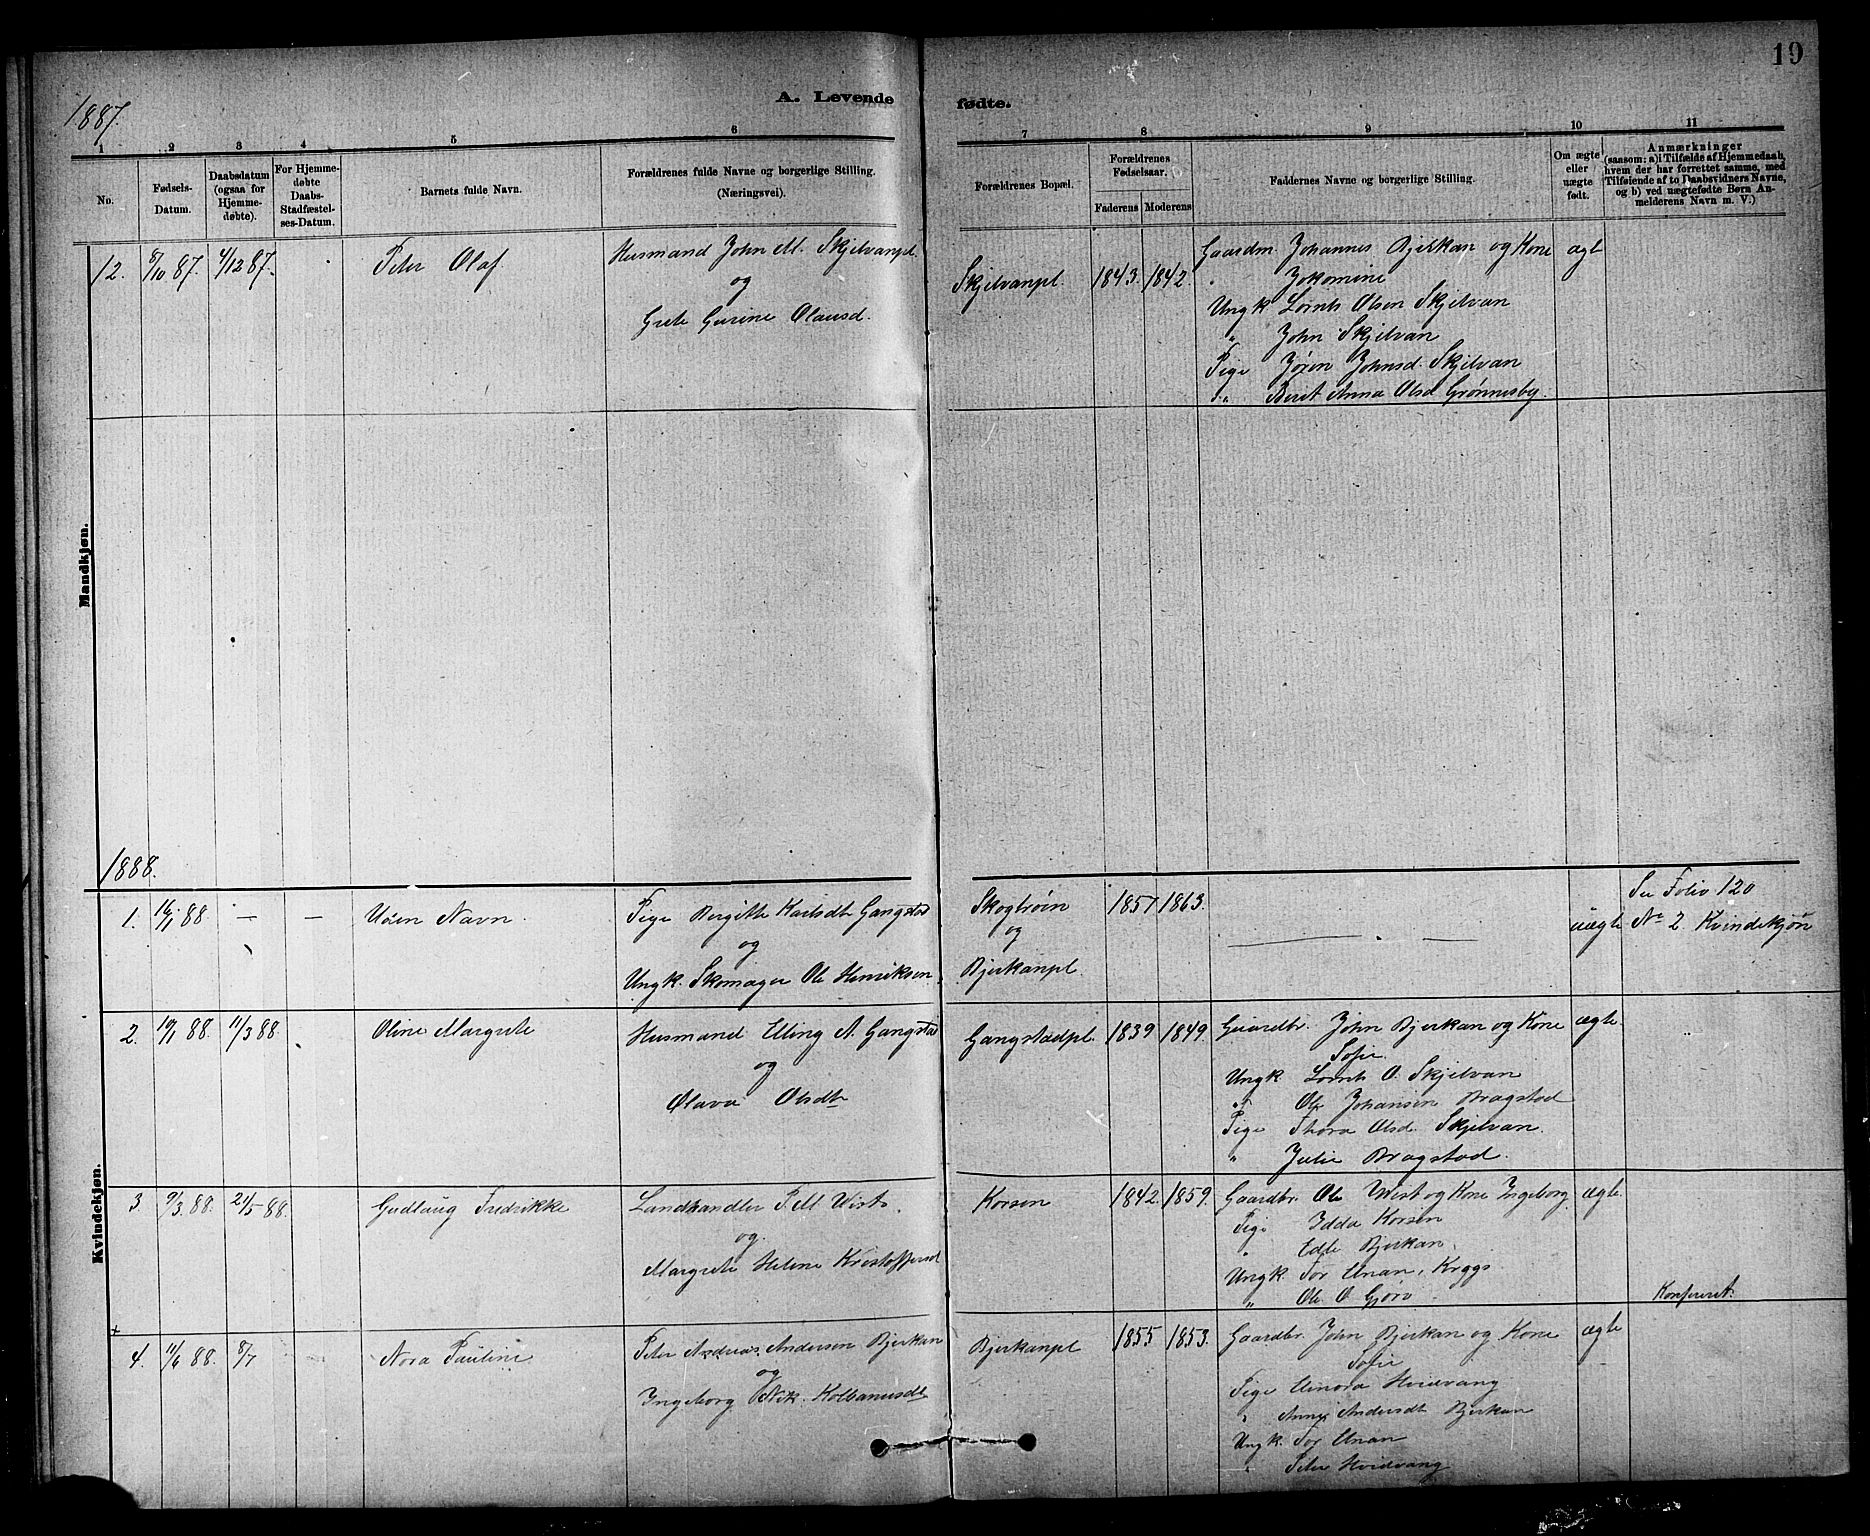 19
1887.
A. Levende fødte.
1 2 3 4 5 6 7 8 9 10 11
No.
Fødsels-Datum.
Daabsdatum (ogsaa for Hjemmedøbte).
For Hjemmedøbte Daabs-Stadfæstelses-Datum.
Barnets fulde Navn.
Forældrenes fulde Navne og borgerlige Stilling.
(Næringsvei).
Forældrenes Bopæl.
Forældrenes Fødselsaar.
Faderens Moderens
Faddernes Navne og borgerlige Stilling.
Om ægte eller uægte født.
Anmærkninger
(saasom: a) i Tilfælde af Hjemmedaab, hvem der har forrettet samme, med Tilføiende af to Daabsvidners Navne, og b) ved uægtefødte Børn Anmelderens Navn m. V.)
Mandkjøn.
12. 8/10 87. 4/12 87. Peter Olaf
Husmand John M. Skjelvanpl.
og
Grete Gurine Olausd.
Skjelvanpl. 1843. 1842.
Gaardm. Johannes Bjerkan og Kone
Jokomine
Ungk Lornts Olsen Skjelvan
" John Skjelvan
Pige Jøren Johnsd. Skjelvan
" Berit Anna Olsd Grønnesby.
ægt
1888.
Kvindekjøn.
1. 16/1 88 — — Uden Navn.
Pige Bergitte Karlsdt Gangstad
og
Ungk. Skomager Ole Henriksen
Skogtrøin
og
Bjerkanpl.
1857 1863.
uægte
Se Folio 120
No 2 Kvindekjøn
2. 19/1 88. 11/3 88. Oline Margrete
Husmand Elling A. Gangstad
og
Olava Olsdt
Gangstadpl. 1839 1849.
Gaardbr. John Bjerkan og Kone
Sofie.
Ungk. Lornts O. Skjelvan
" Ole Johansen Bragstad
Pige Thora Olsd. Skjelvan.
" Julie Bragstad.
ægte.
3. 9/3 88. 21/5 88. Gudlaug Fredrikke
Landhandler P. M. Wist.
og
Margrete Helene Kristoffersd
Korsen 1842. 1859.
Gaardbr. Ole Wist og Kone Ingeborg
Pige Idda Korsen
" Edle Bjerkan
Ungk. Tor Unan, Krygs
" Ole O. Gjørv.
ægte.
Konfereret.
+
4. 11/6 88. 8/7 Nora Pauline
Peter Andreas Andersen Bjerkan
og
Ingeborg Nik. Kolbanusdt
Bjerkanpl 1855 1853.
Gaardbr. John Bjerkan og Kone
Sofie
Pige Elinora Hvidvang
" Anne Andersdt Bjerkan
Ungk. Tor Unan
" Peter Hvidvang
ægte